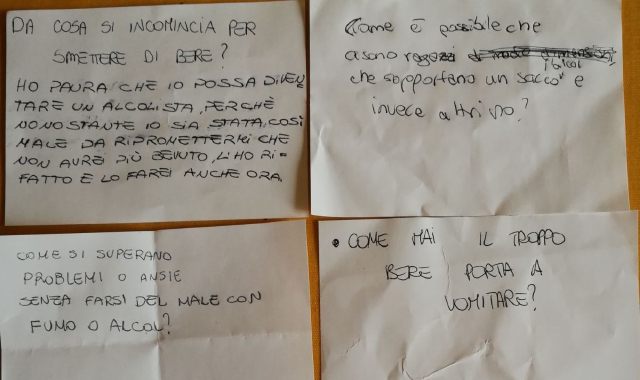 DA COSA SI INCOMINCIA PER
SMETTERE DI BERE?
HO PAURA CHE IO POSSA DIVEN
TARE UN ALCOLISTA, PERCHÈ
NONOSTANTE IO SIA STATA COSÌ
MALE DA RIPROMETTERMI CHE
NON AVREI PIÙ BEVUTO, L'HO RI=
FATTO E LO FAREI ANCHE ORA.
Come è possibile che
ci sono ragazzi
che sopportano un sacco e
invece altri no?
COME SI SUPERANO
PROBLEMI O ANSIE
SENZA FARSI DEL MALE CON
FUMO O ALCOL?
• COME MAI IL TROPPO
BERE PORTA A
VOMITARE?